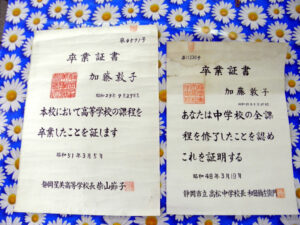 第4571号
卒業証書
加藤敦子
本校において高等学校の課程を
卒業したことを証します
昭和51年3月5日
静岡星美高等学校長
卒業証書
加藤敦子
あなたは中学校の全課
程を修了したことを認め
これを証明する
昭和48年3月19日
静岡市立高松中学校長